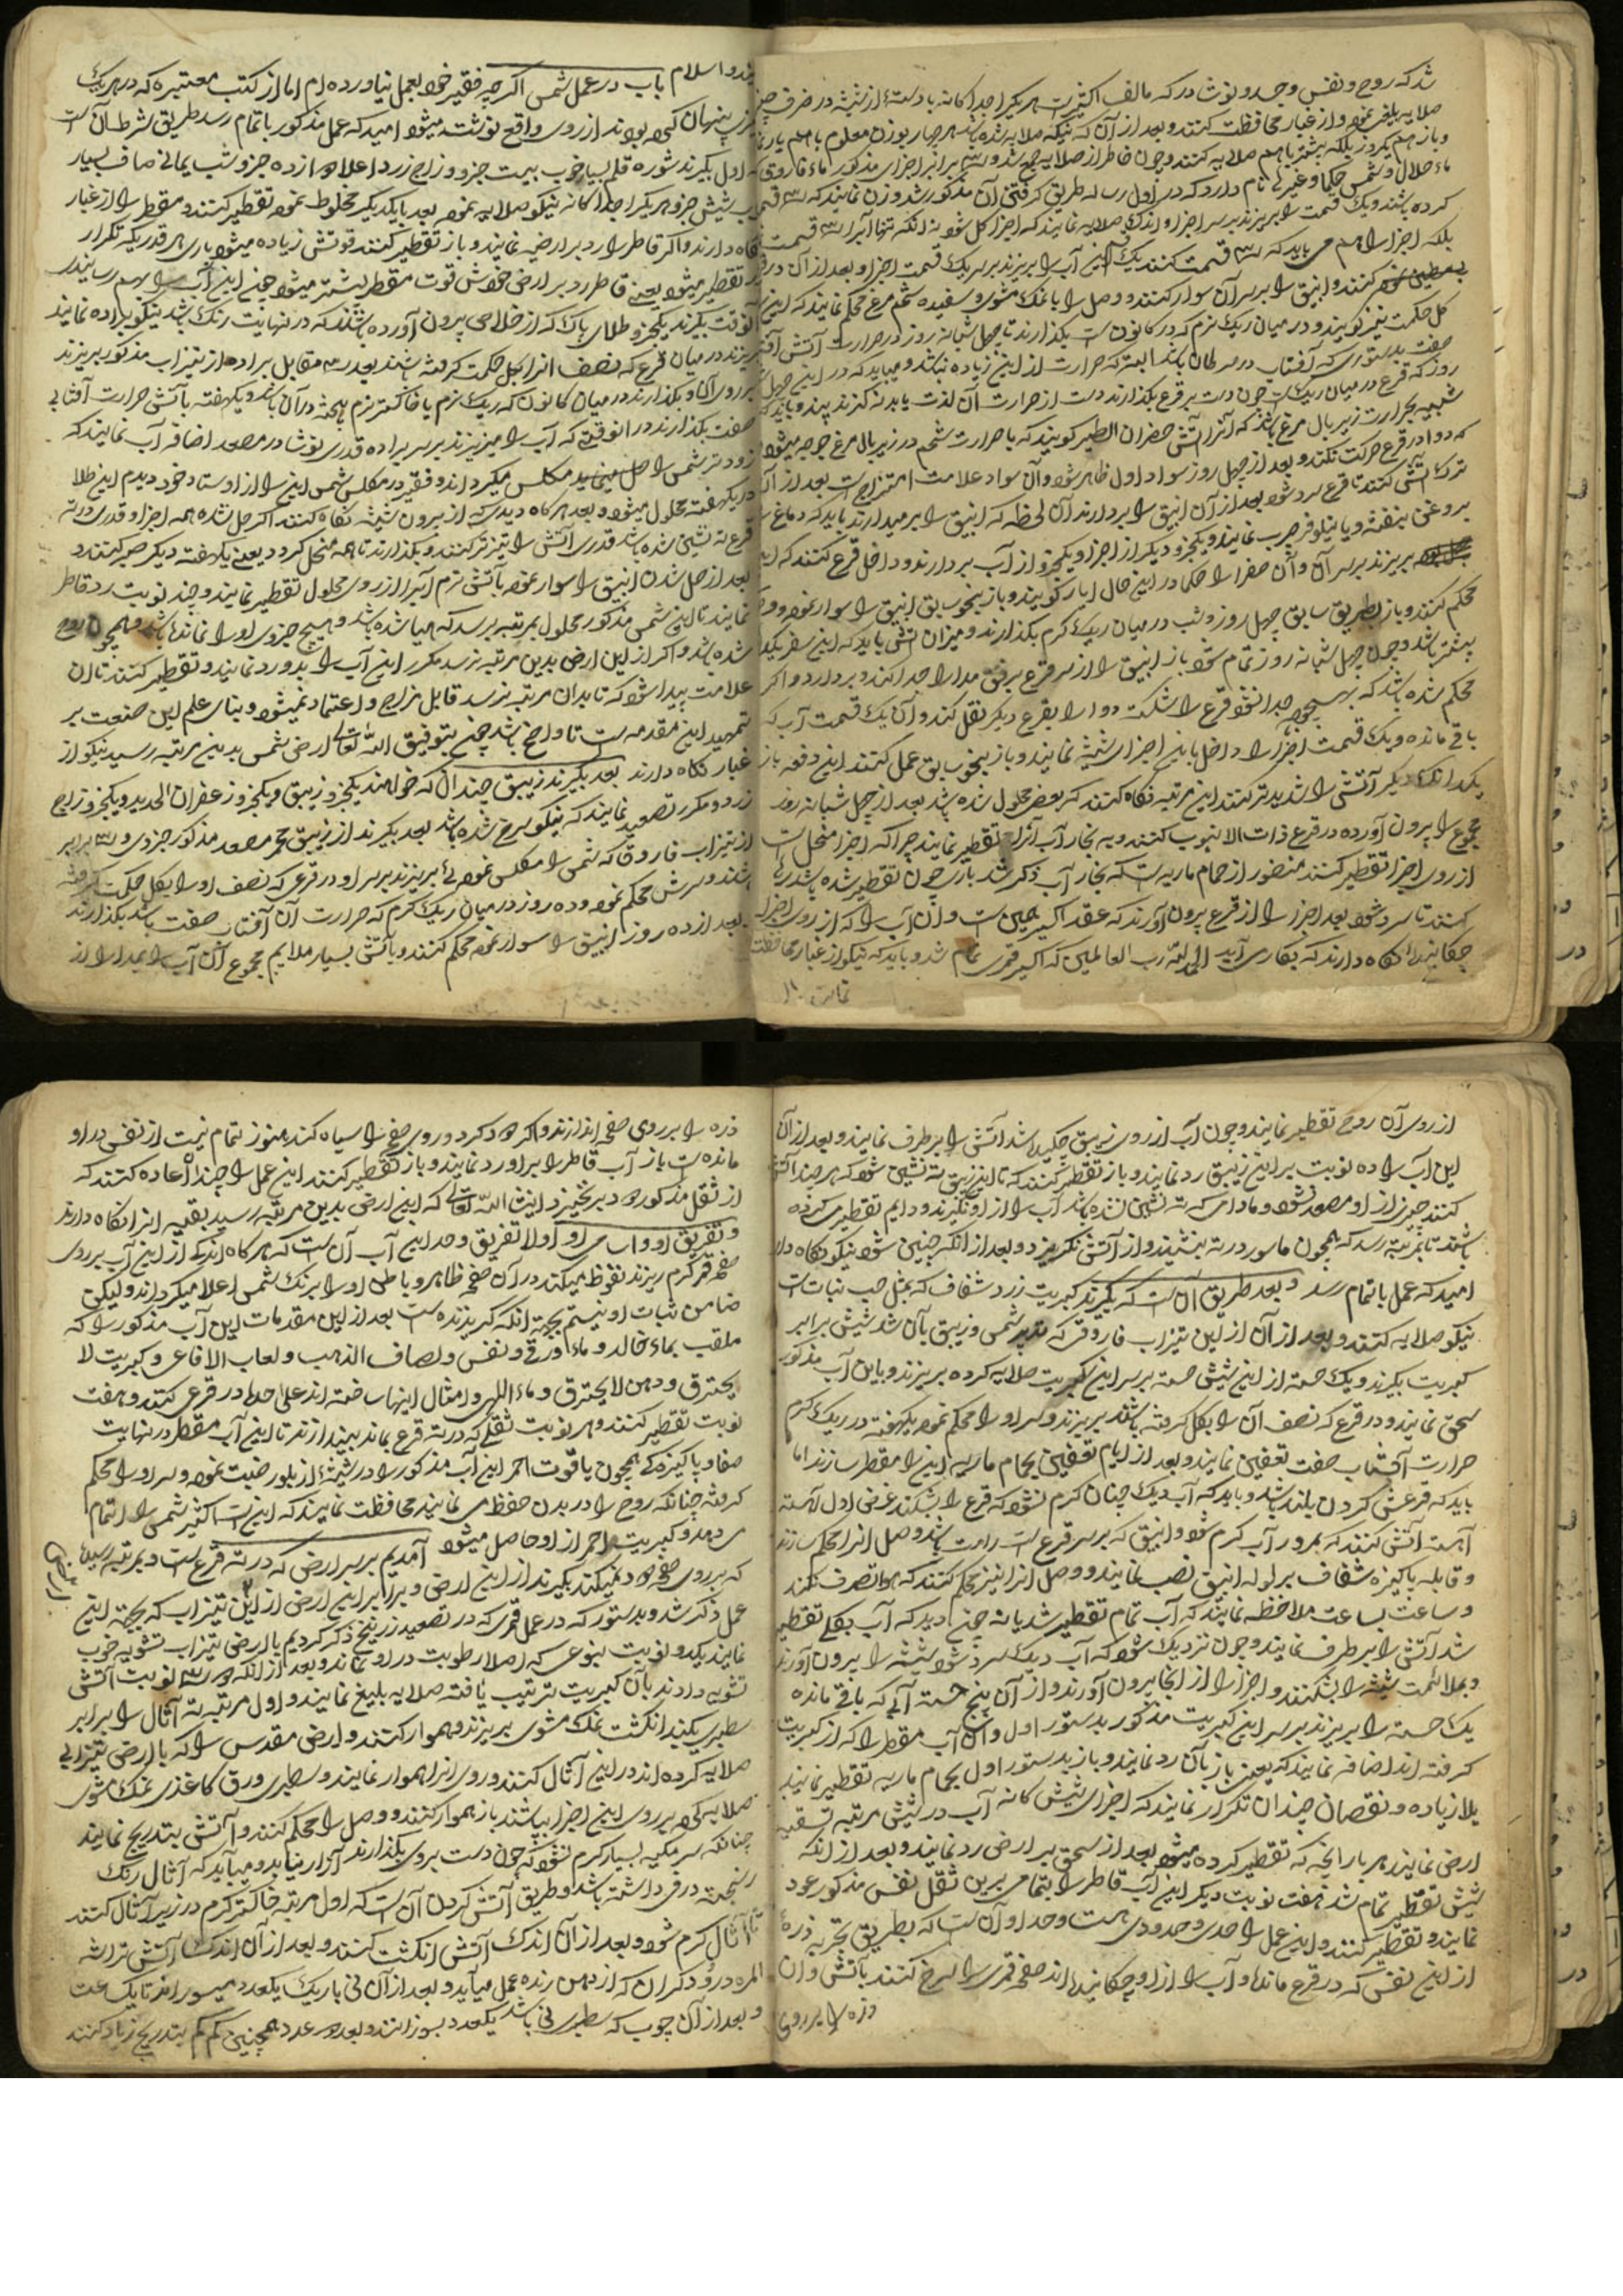 شد که روح و نفس و جسد و نوشادر که مالف اکثیر است هر یکرا جدا کانه یا دسته از شیشه در ظرف چینی
صلایه بلیغ نموده و از غبار محافظت کنند و بعد از آن که نیکو صلایه شده باشد هر چهار بوزن معلوم باهم یار نمایند
و باز هم یکروز بلکه بیشتر باهم صلایه کنند و چون خاطر از صلایه جمع شد و سه برابر اجزای مذکور ماء فاروقی که
ماء حلال و شمس حکما و غیره نام دارد که در اول رساله طریق گرفتن آن مذکور شد وزن نمایند که سه قسمت
کرده باشند و یک قسمت را بریزند بر سر اجزا و اندک صلایه نمایند که اجزا کل شود نه آنکه تنها آنرا سه قسمت
بلکه اجزا را هم می باید که سه قسمت کنند یک قسم این آب را بریزند بر سر یک قسمت اجزا و بعد از آن در قرع
مطین نموده کنند و انبیق را بر سر آن سوار کنند و وصل را با نمک مشوی و سفیده تخم مرغ محکم نمایند که این را
گل حکمت نیز گویند و در میان ریک نرم که در کانون است بگذارند تا چهل شبانه روز در حرارت آتش آفتاب
صفت بدستوری که آفتاب در سرطان باشد البته که حرارت از این زیاده نباشد و میباید که در این چهل
روز که قرع در میان ریک است چون دست بر قرع بگذارند دست از حرارت آن لذت یابد نه گزند بیند و باید که
شبیه بحرارت زیر بال مرغ باشد که آنرا آتش حضران الطیر گویند که با حرارت تخم در زیر بال مرغ جوجه میشود
که دوا در قرع حرکت نکند و بعد از چهل روز سواد اول ظاهر شود و آن سواد علامت امتزاج است بعد از آن
ترک آتش کنند تا قرع سرد شود بعد از آن انبیق را بردارند آن لحظه که انبیق را بر میدارند باید که دماغ را
بروغن بنفشه و یا نیلوفر چرب نمایند و یکجزو دیگر از اجزا و یکجزو از آب بردارند و داخل قرع کنند که این
بریزند بر سر آن و آن صفرا را حکما در این حال ایار گویند و باز بنحو سابق انبیق را سوار نموده و وصل
محکم کنند و باز بطریق سابق چهل روز و شب در میان ریک گرم بگذارند و میزان آتش باید که این سفر یکدرجه
بیشتر باشد و چون چهل شبانه روز تمام شود باز انبیق را از سر قرع برفق مدارا جدا کند و بردارد و اگر
محکم شده باشد که بهیچوجه جدا نشود قرع را شکسته دوا را بقرع دیگر نقل کند و آن یک قسمت آب که
باقی مانده و یک قسمت اجزا را داخل با این اجزای شیشه نمایند و باز بنحو سابق عمل کنند این دفعه باز
یکدانک دیگر آتش را شدید تر کنند این مرتبه نگاه کنند که بعضی محلول شده باشد بعد از چهل شبانه روز
مجموع را بیرون آورده در قرع ذات الانبوب کنند و به بخار آب آنرا تقطیر نمایند چرا که اجزا منحل است
از روی اجزا تقطیر کنند منضور از حمام ماریه است که بخار آب ذکر شد باز چون تقطیر شده باشد ریک
کنند تا سرد شود بعد اجزا را از قرع بیرون آورند که عقد اکسیر همین است و آن آب را که از روی اجزا
چکانیدند نگاه دارند که بکار می آید الحمد لله رب العالمین که اکسیر قمری تمام شد و باید که نیکو از غبار محافظت
تمامت
باب در عمل شمسی اگر چه فقیر خود بعمل نیاورده ام اما از کتب معتبره که در هر یک
پنهان کرده بودند از روی واقع نوشته میشود امید که عمل مذکور باتمام رسد طریق شرط آن است
که اول بگیرند شوره قلمی بسیار خوب بیست جزو و زاج زرد اعلا دوازده جزو شب یمانی صاف بسیار
خوب شیش جزو هر یکرا جدا کانه نیکو صلایه نموده بعد با یکدیگر مخلوط نموده تقطیر کنند و مقطر را از غبار
نگاه دارند و اگر قاطر را رد بر ارضیه نمایند و باز تقطیر کنند قوتش زیاده میشود باری هر قدر یکه تکرار
در تقطیر میشود یعنی قاطر رد بر ارض خودش قوت مقطر بیشتر میشود چون این آب را بهم رسانیدند
آنوقت بگیرند یکجزو طلای پاک که از خلاص بیرون آورده باشند که در نهایت رنک باشد نیکو براده نمایند
بریزند در میان قرع که نصف آنرا بگل حکمت گرفته باشند بعد سه مقابل براده از تیزاب مذکور بریزند
بر روی آن و بگذارند در میان کانون که ریک نرم یا خاکستر نرم بیخته در آن باشد و یکهفته بآتش حرارت آفتابی
صفت بگذارند در آنوقتی که آب را میریزند بر سر براده قدری نوشادر مصعد اضافه آب نمایند که
زودتر شمس را حل مینماید مکلس میگرداند و فقیر در مکلس شمس این را از اوستاد خود دیدم این طلا
در یکهفته محلول میشود و بعد هر گاه دیدی که از بیرون شیشه نگاه کنند اگر حل شده همه اجزا و قدری در ته
قرع ته نشین شده باشد قدری آتش را تیز تر کنند و بگذارند تا همه منحل گردد یعنی یکهفته دیگر صبر کنند و
بعد از حل شدن انبیق را سوار نموده بآتش نرم آبرا از روی محلول تقطیر نمایند و چند نوبت رد قاطر
نمایند تا این شمس مذکور محلول بمرتبه برسد که مهیا شده باشد و هیچ جزوی او را نمانده باشد و همچو
شده باشد و اگر از این ارض بدین مرتبه نرسد مکرر این آب را بدو رد نمایند و تقطیر کنند تا آن
علامت پیدا شود که تا بدان مرتبه نرسد قابل مزاج و اعتماد نمیشود و بنای علم این صنعت بر
تمهید این مقدمه است تا واضح باشد چون بتوفیق الله تعالی ارض شمس بدین مرتبه رسید نیکو از
غبار نگاه دارند بعد بگیرند زیبق چندان که خواهند یکجزو زیبق و یکجزو زعفران الحدید و یکجزو زاج
زرد و مکرر تصعید نمایند که نیکو سرخ شده باشد بعد بگیرند از زیبق محمر مصعد مذکور جزوی و سه برابر
از تیزاب فاروق که شمس را مکلس نموده ئی بریزند بر سر او در قرعی که نصف او را بگل حکمت گرفته
باشند و سرش محکم نموده و ده روز در میان ریک گرم که حرارت آن آفتاب صفت باشد بگذارند
بعد از ده روز انبیق را سوار نموده محکم کنند و بآتش بسیار ملایم مجموع آن آب را بمدارا از
از روی آن روح تقطیر نمایند و چون آب از روی زیبق چکیده شد آتش را بر طرف نمایند و بعد از آن
این آب را ده نوبت بر این زیبق رد نمایند و باز تقطیر کنند که تا این زیبق ته نشین شود که هر چند آتش
کنند چیزی از او مصعد نشود و مادامی که ته نشین نشده باشد آب را از او نگیرند و دایم تقطیر میکرده
باشند تا بمرتبه رسد که همچون ماسور در ته بنشیند و از آتش نگریزد و بعد از آنکه چنین شود نیکو نگاه دار
امید که عمل باتمام رسد و بعد طریق آن است که بگیرند کبریت زرد شفاف که بمثل حب نبات است
نیکو صلایه کنند و بعد از آن از این تیزاب فاروقی که تدبیر شمس و زیبق بآن شد شیش برابر
کبریت بگیرند و یک حصه از این شیش حصه بر سر این کبریت صلایه کرده بریزند و با این آب مذکور
سحق نمایند و در قرع که نصف آن را بگل گرفته باشند بریزند و سر او را محکم نموده یکهفته در ریک گرم
حرارت آفتاب صفت تعفین نمایند و بعد از ایام تعفین بحمام ماریه این را مقطر سازند اما
باید که قرعش گردن بلند باشد و باید که آب دیک چنان گرم نشود که قرع را بشکند غرض اول آهسته
آهسته آتش کنند که بمرور آب گرم شود و انبیق که بر سر قرع است راست باشد وصل آنرا محکم سازند
و قابله پاکیزه شفاف بر لوله انبیق نصب نمایند و وصل آنرا نیز محکم کنند که هوا تصرف نکند
و ساعت بساعت ملاحظه نمایند که آب تمام تقطیر شد یا نه چون دید که آب بکلی تقطیر
شد آتش را بر طرف نمایند و چون نزدیک شود که آب دیک سرد شود شیشه را بیرون آورند
و بملائمت شیشه را بشکنند و اجزا را از آنجا بیرون آورند و از آن پنج حصه آبی که باقی مانده
یک حصه را بریزند بر سر این کبریت مذکور بدستور اول و آن آب مقطر را که از کبریت
گرفته اند اضافه نمایند که یعنی باز بآن رد نمایند و باز بدستور اول بحمام ماریه تقطیر نمایند
بلا زیاده و نقصان چندان تکرار نمایند که اجزای شیش کانه آب در شیش مرتبه تسقیه
ارض نمایند هر بار آنچه که تقطیر کرده میشود بعد از سحق بر ارض رد نمایند و بعد از آنکه
شیش تقطیر تمام شد هفت نوبت دیگر این آب قاطر را بتمامی برین ثقل نفس مذکور عود
نمایند و تقطیر کنند و این عمل را حدی و حدودی هست و حد او آن است که بطریق تجربه ذرهٔ
از این نفس که در قرع مانده و آب را از او چکانیده اند صفحه قمری را سرخ کنند بآتش و آن
ذره را بر روی
ذره را بر روی صفحه اندازند و اگر دود کرد و روی صفحه را سیاه کند هنوز تمام نیست از نفس در او
مانده است باز آب قاطر را بر او رد نمایند و باز تقطیر کنند این عمل را چندان اعاده کنند که
از ثقل مذکور دود بر نخیزد انشاء الله تعالی که این ارض بدین مرتبه رسید بقیه آنرا نگاه دارند
و تفریق او و اساس او اولا تفریق و حد این آب آن است که هر گاه اندکی از این آب بر روی
صفحه قمر گرم ریزند نفوظ میکند در آن صفحه ظاهر و باطن او را برنک شمس اعلا میگرداند و لیکن
ضامن ثبات او نیستم بجهة آنکه گریزنده است بعد از این مقدمات این آب مذکور را که
ملقب بماء خالد و ماء اورقی و نفس و لصاف الذهب و لعاب الافاعی و کبریت لا
یحترق و دهن لا یحترق و ماء اللهی و امثال اینها ساخته اند علی حده در قرعی کنند و هفت
نوبت تقطیر کنند و هر نوبت ثقلی که در ته قرع بماند بیندازند تا این آب مقطر در نهایت
صفا و پاکیزه کی همچون یاقوت احمر این آب مذکور را در شیشهٔ از بلور ضبت نموده و سر او را محکم
گرفته چنانکه روح را در بدن حفظ می نمایند محافظت نمایند که این است اکثیر شمس را و اتمام
میدهد و کبریت احمر از او حاصل میشود آمدیم بر سر ارض که در ته قرع است و بمرتبه رسیده
که بر روی صفحه دود نمیکند بگیرند از این ارض و برابر این ارض از این تیزاب که بجهة این
عمل ذکر شد و بدستور که در عمل قمری که در تصعید زرنیخ ذکر کردیم با ارض تیزاب تشویه خوب
نمایند یکدو نوبت بنوعی که اصلا رطوبت در او نماند و بعد از آنکه دو سه نوبت آتش
تشویه دادند بآن کبریت ترتیب یافته صلایه بلیغ نمایند و اول مرتبه ته آثال را برابر
سطبری یکبند انگشت نمک مشوی بریزند و هموار کنند و ارض مقدس را که با ارض تیزابی
صلایه کرده اند در این آثال کنند و روی آنرا هموار نمایند و سطبری ورق کاغذی نمک مشوی
صلایه کرده بر روی این اجزا بپاشند باز هموار کنند و وصل را محکم کنند و آتش بتدریج نمایند
چنانکه سر مکبه بسیار گرم نشود که چون دست بروی بگذارند آزار نیابد و میباید که آثال رنک
داشته باشد و طریق آتش کردن آن است که اول مرتبه خاکستر گرم در زیر آثال کنند
تا آثال گرم شود و بعد از آن اندک آتش انگشت کنند و بعد از آن اندک آتش تراشه
که از دهن رنده عمل میآید و بعد از آن نی باریک یکعدد میسوزانند تا یک ساعت
و بعد از آن چوب که سطبری نی باشد یکعدد بسوزانند و بعد دو عدد همچنین کم کم بتدریج زیاد کنند